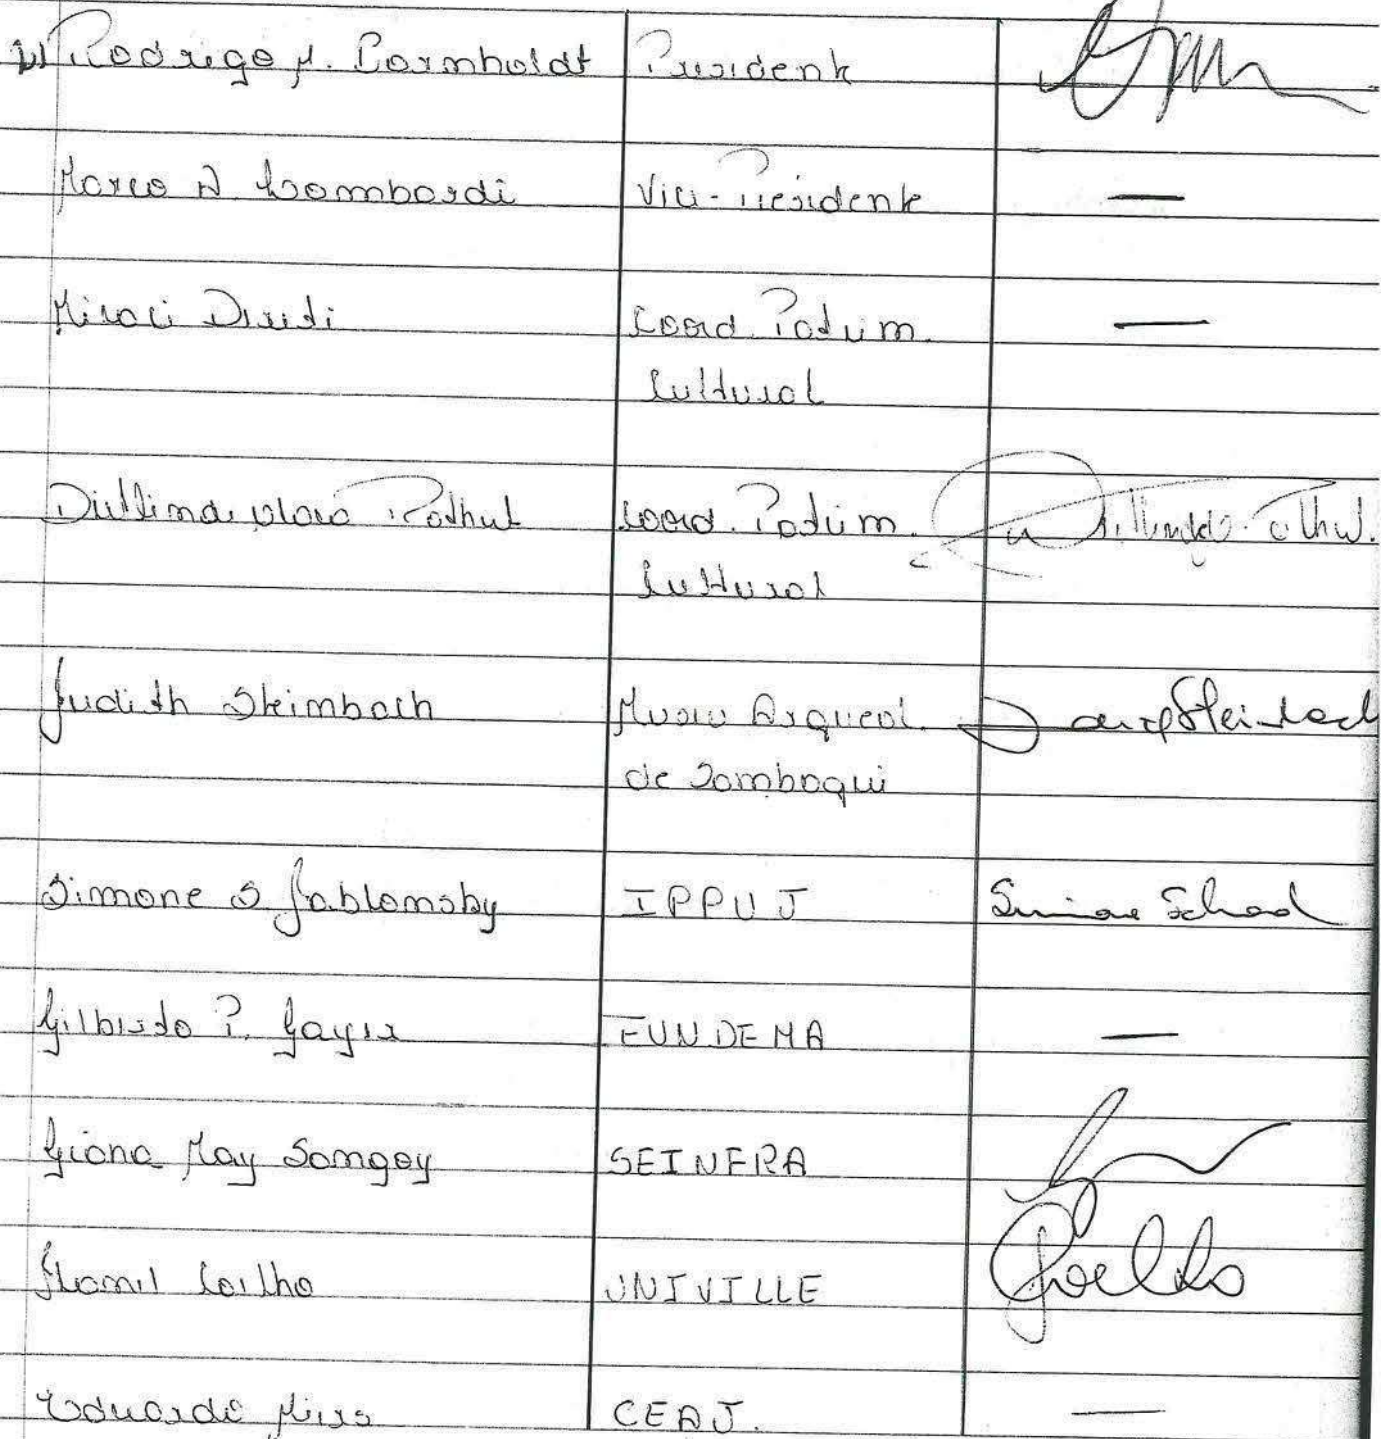 Rodrigo M. Bornholdt Presidente
Marco A. Lombardi Vice-Presidente
Miraci Direti Coord. Patrim.
Cultural
Dietlinde Clara Rothert Coord. Patrim.
Cultural
Judith Steinbach Museu Arqueol.
de Sambaqui
Simone S. Jablonsky IPPUJ Simone Schad
Gilberto P. Gayer FUNDEMA —
Giana May Sangoy SEINFRA
Ilanil Coelho UNIVILLE Coelho
Eduardo Mirs CEAJ. —